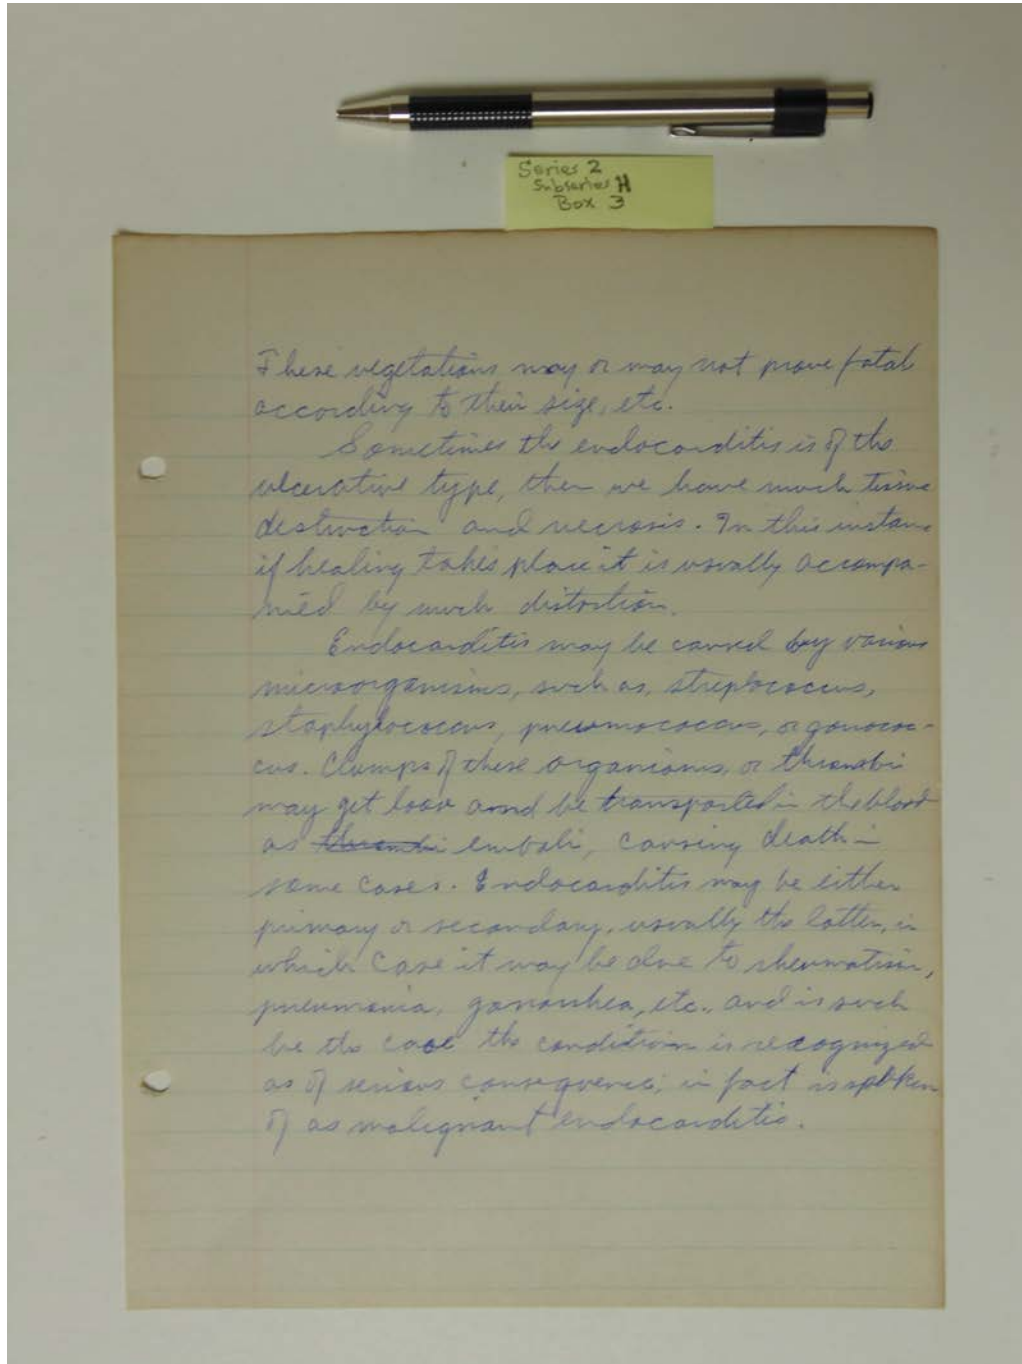 Series 2
Subseries H
Box 3
These vegetations may or may not prove fatal
according to their size, etc.
Sometimes the endocarditis is of the
ulcerative type, then we have much tissue
destruction and necrosis. In this instance
if healing takes place it is usually accompa-
nied by much distortion.
Endocarditis may be caused by various
microorganisms, such as, streptococcus,
staphylococcus, pneumococcus, or gonococ-
cus. Clumps of these organisms, or thrombi
may get loose and be transported in the blood
as thrombi emboli, causing death in
some cases. Endocarditis may be either
primary or secondary, usually the latter, in
which case it may be due to rheumatism,
pneumonia, gonorrhea, etc., and is such
be the case the condition is recognized
as of serious consequence; in fact is spoken
of as malignant endocarditis.